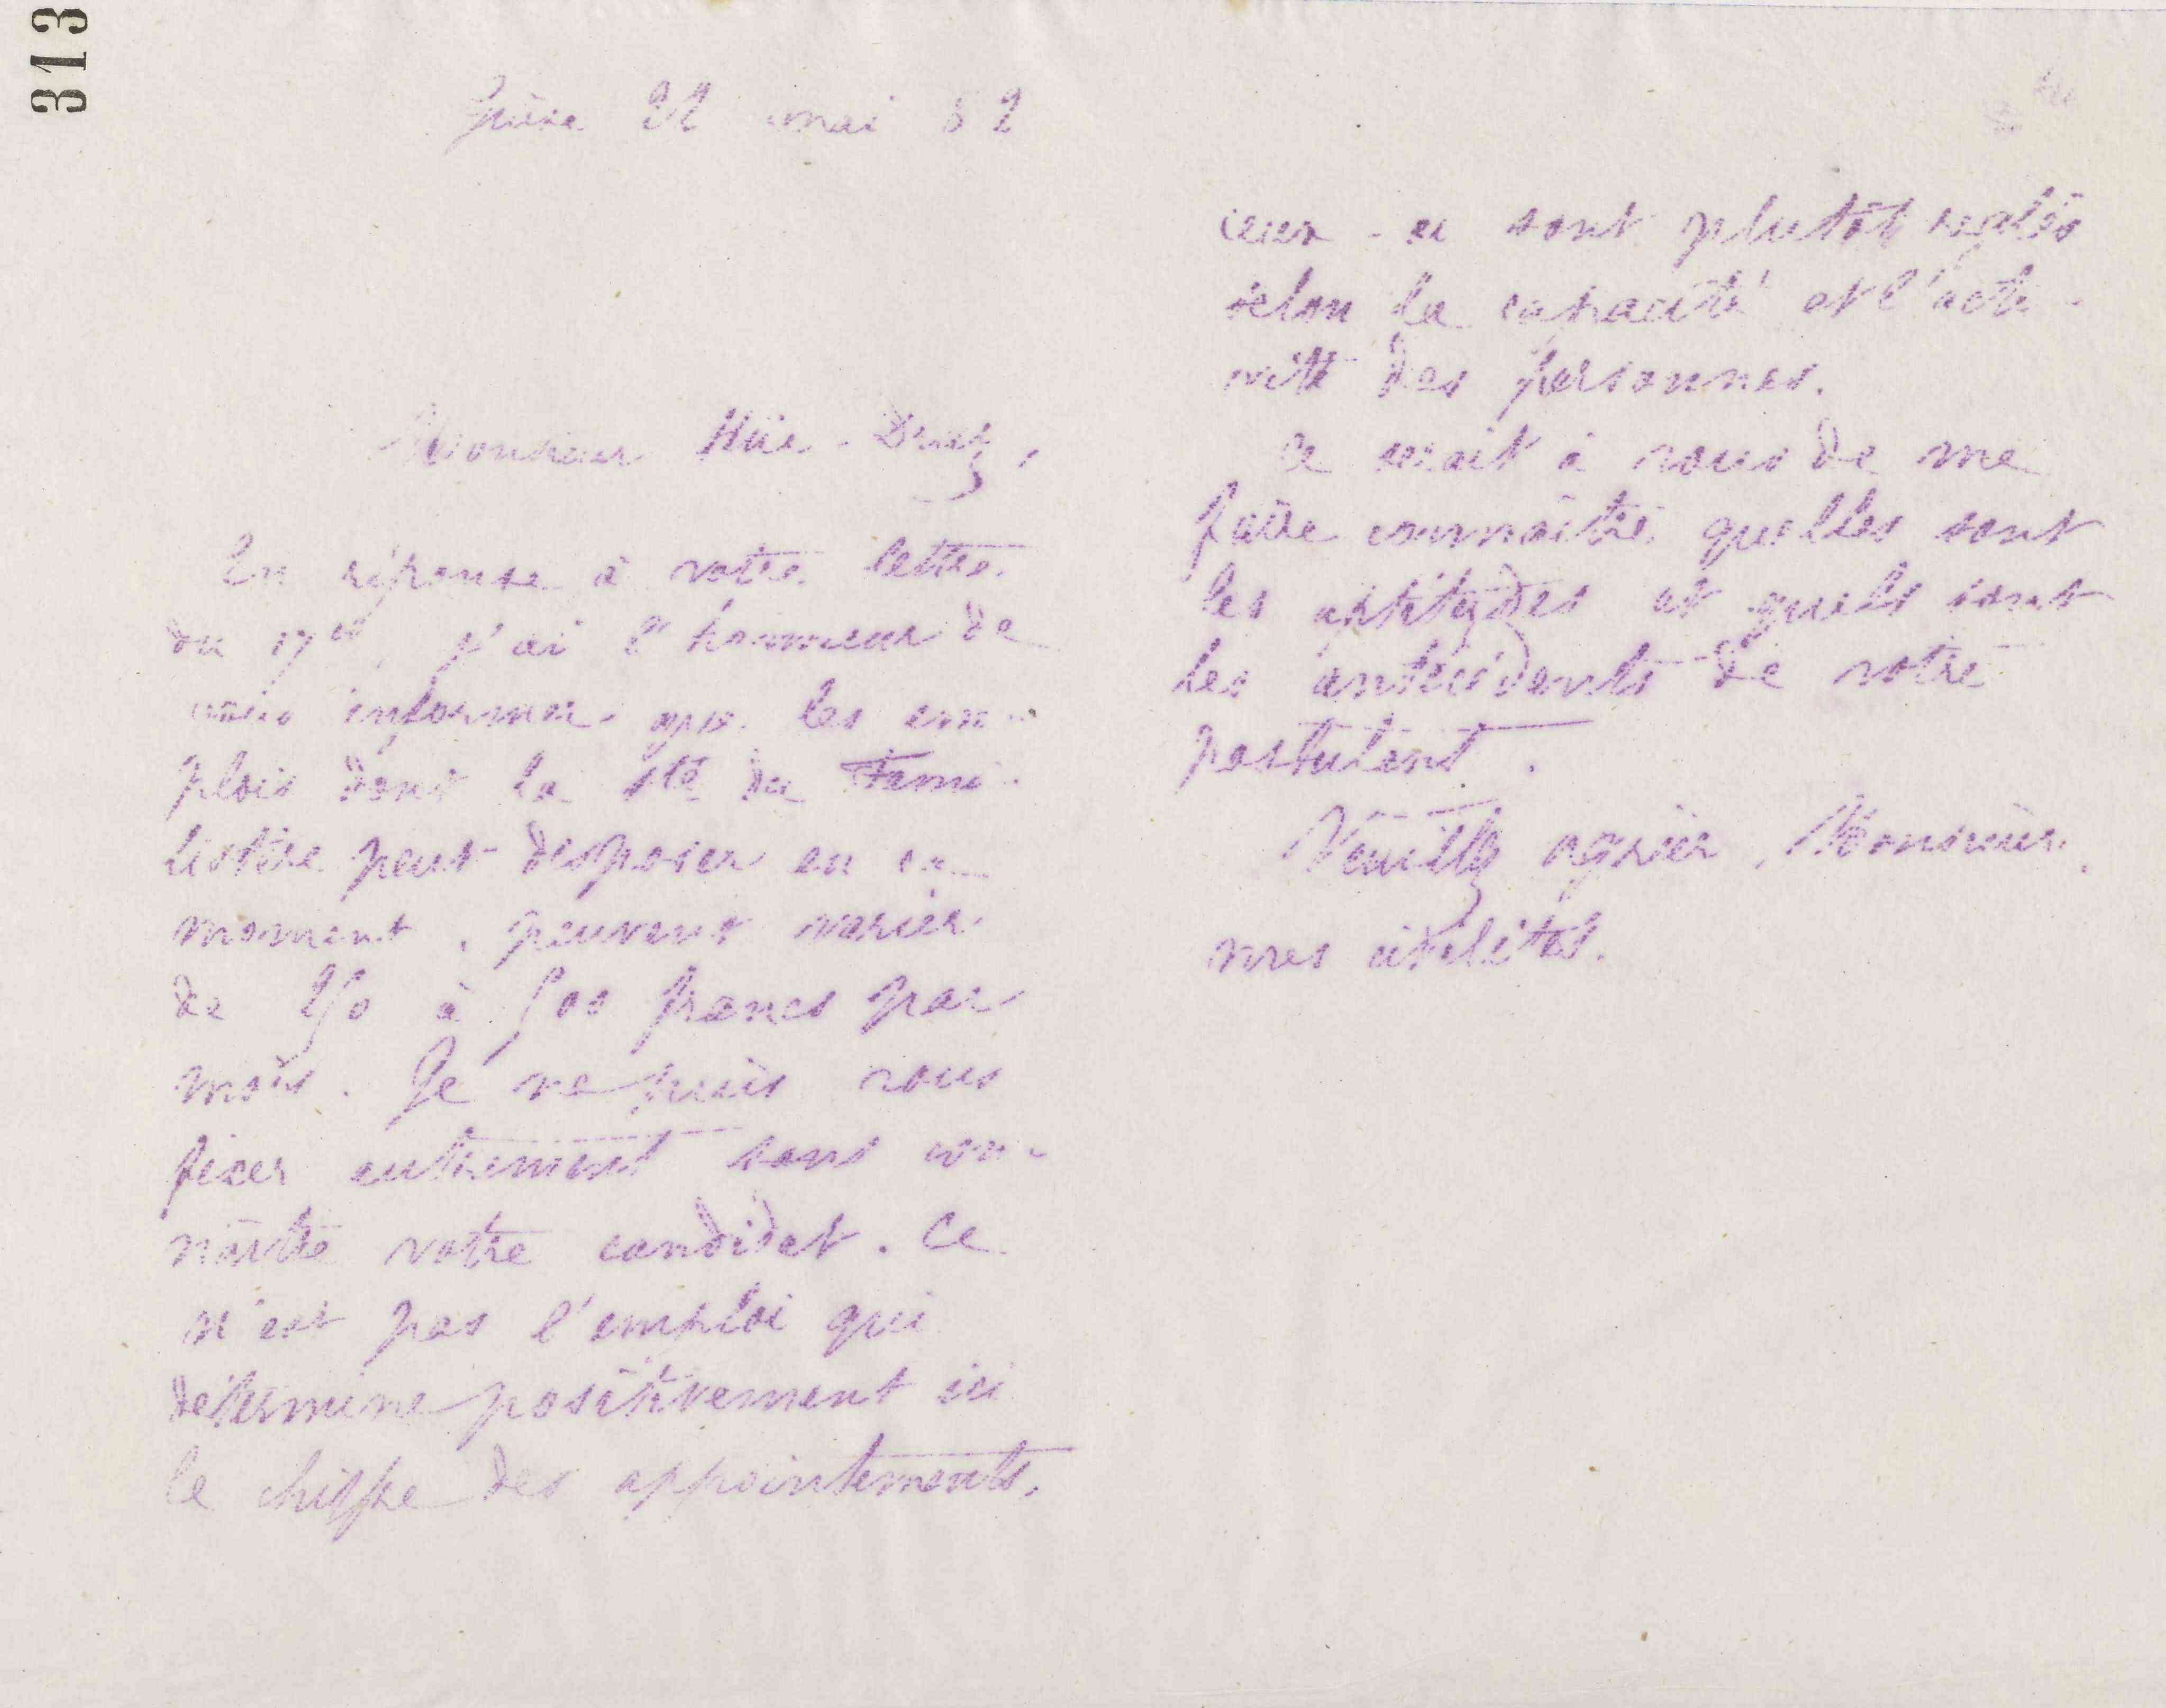 313
Guise 22 mai 82
Monsieur
En réponse à votre lettre
du 17 ct, j'ai l'honneur de
vous informer que les em-
plois dont la Sté du Fami-
listère peut disposer en ce
moment, peuvent varier
de 250 à 500 francs par
mois. Je ne puis vous
fixer autrement sans con-
naître votre candidat. Ce
n'est pas l'emploi qui
détermine positivement ici
le chiffre des appointements,
ceux-ci sont plutôt réglés
selon la capacité et l'acti-
vité des personnes.
Ce serait à vous de me
faire connaître quelles sont
les aptitudes et quels sont
les antécédents de votre
postulant.
Veuillez agréer, Monsieur,
mes civilités.